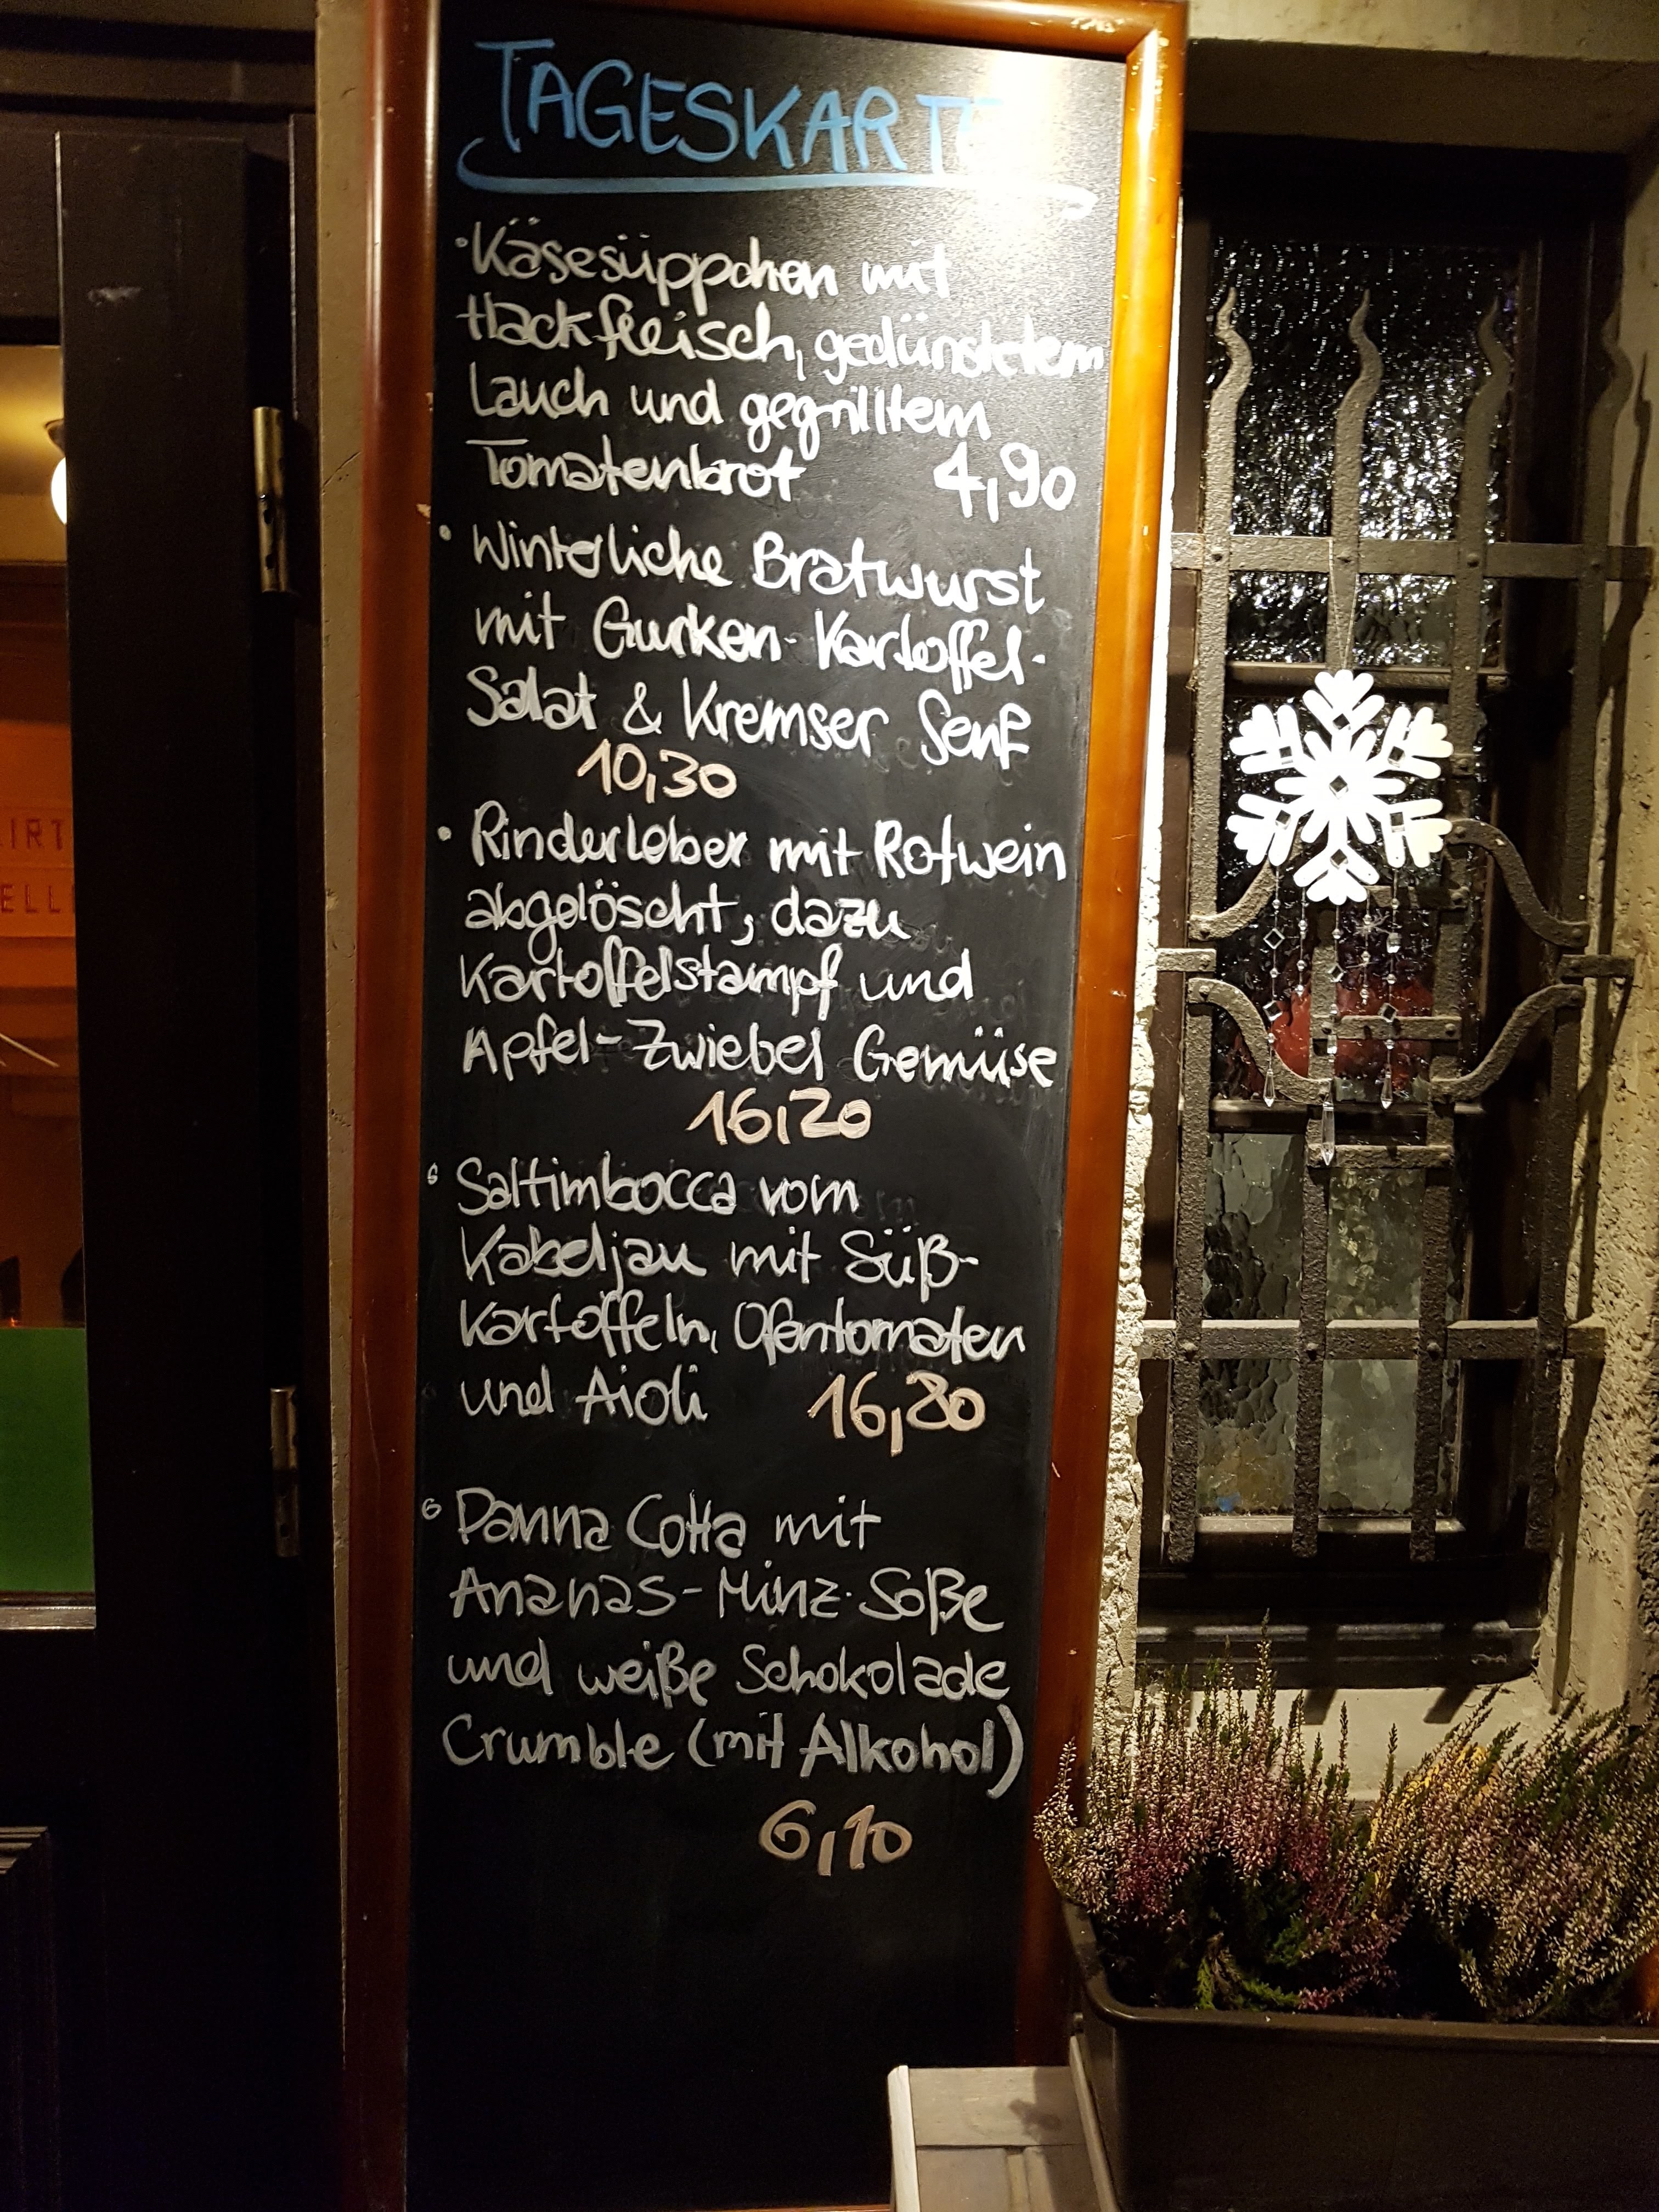 TAGESKARTE
• Käsesüppchen mit
Hackfleisch, gedünstetem
Lauch und gegrilltem
Tomatenbrot 4,90
• Winterliche Bratwurst
mit Gurken-Kartoffel-
Salat & Kremser Senf
10,30
• Rinderleber mit Rotwein
abgelöscht, dazu
Kartoffelstampf und
Apfel-Zwiebel Gemüse
16,20
• Saltimbocca vom
Kabeljau mit Süß-
Kartoffeln, Ofentomaten
und Aioli 16,80
• Panna Cotta mit
Ananas-Minz-Soße
und weiße Schokolade
Crumble (mit Alkohol)
6,10